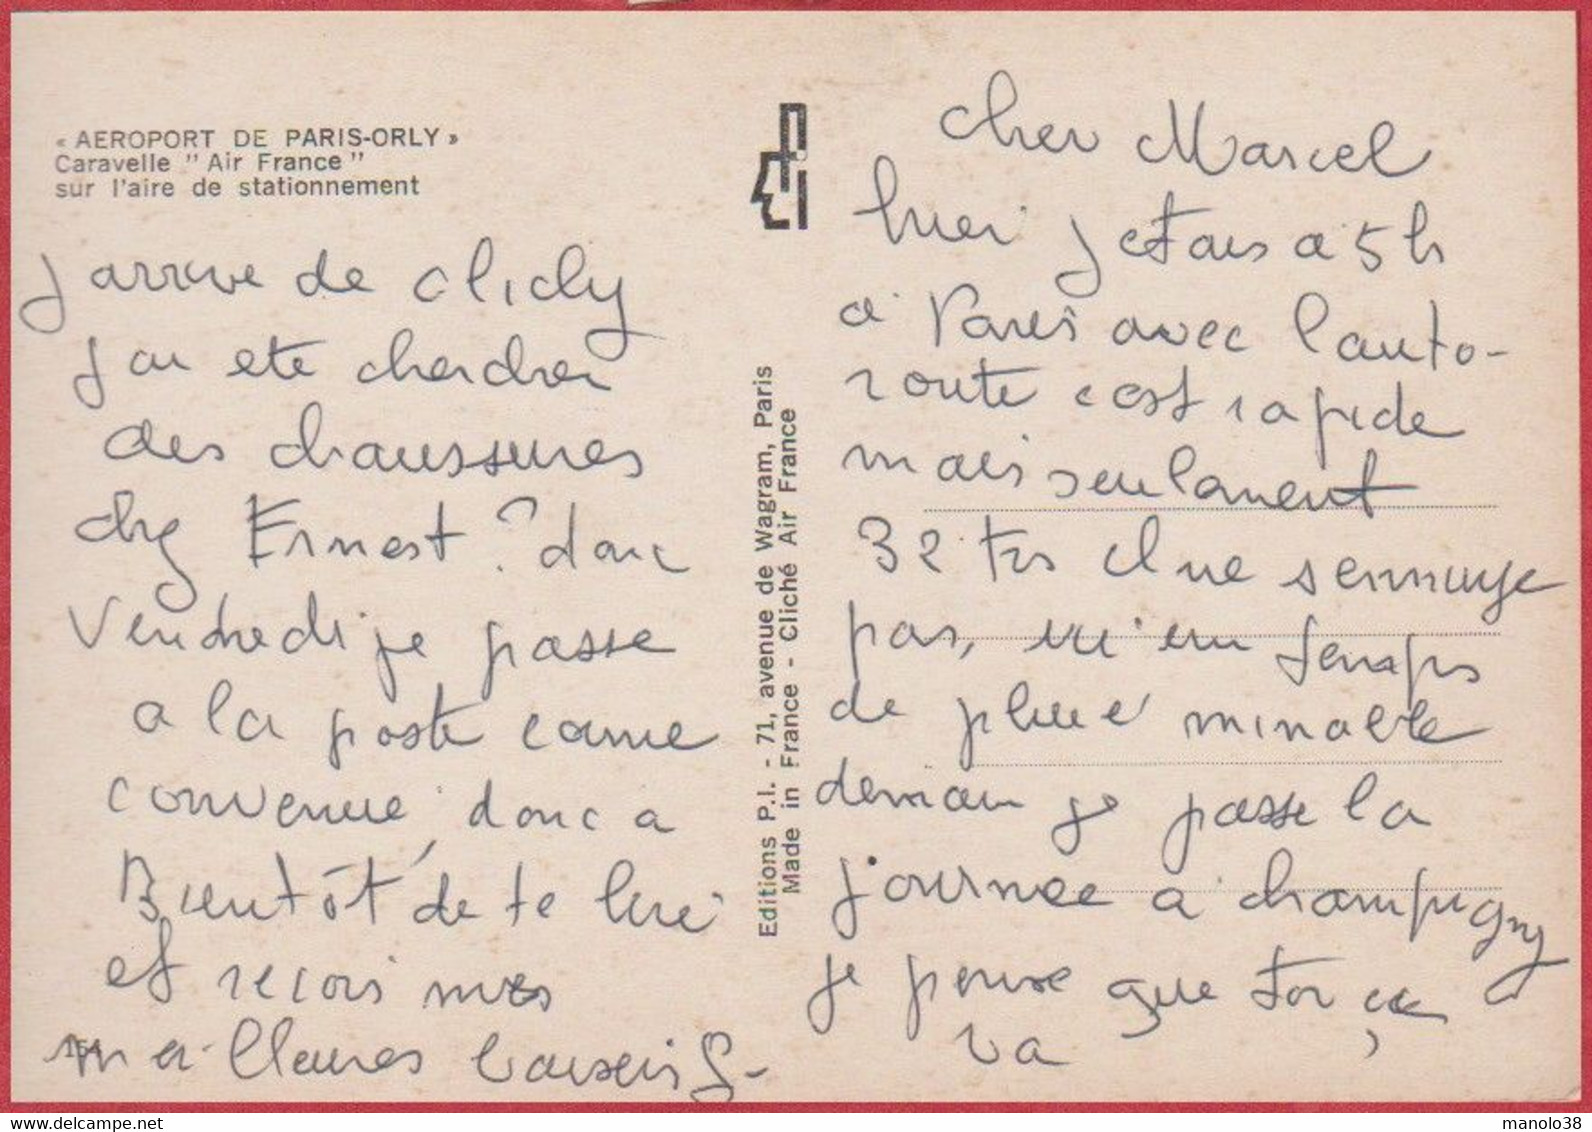 « AEROPORT DE PARIS-ORLY »
Caravelle " Air France "
sur l'aire de stationnement
Editions P.I. - 71, avenue de Wagram, Paris
Made in France - Cliché Air France
cher Marcel
hier jetais a 5h
a Paris avec lauto-
route cest rapide
mais seulement
32 frs Il ne sennuye
pas, un temps
de pluie minable
demain je passe la
journee a champigny
je pense que toi ça
va
jarrive de clichy
jai ete chercher
des chaussures
chez Ernest? donc
Vendredi je passe
a la poste comme
convenue, donc a
Bientôt de te lire
et recois mes
meilleures baisers G-
manolo38